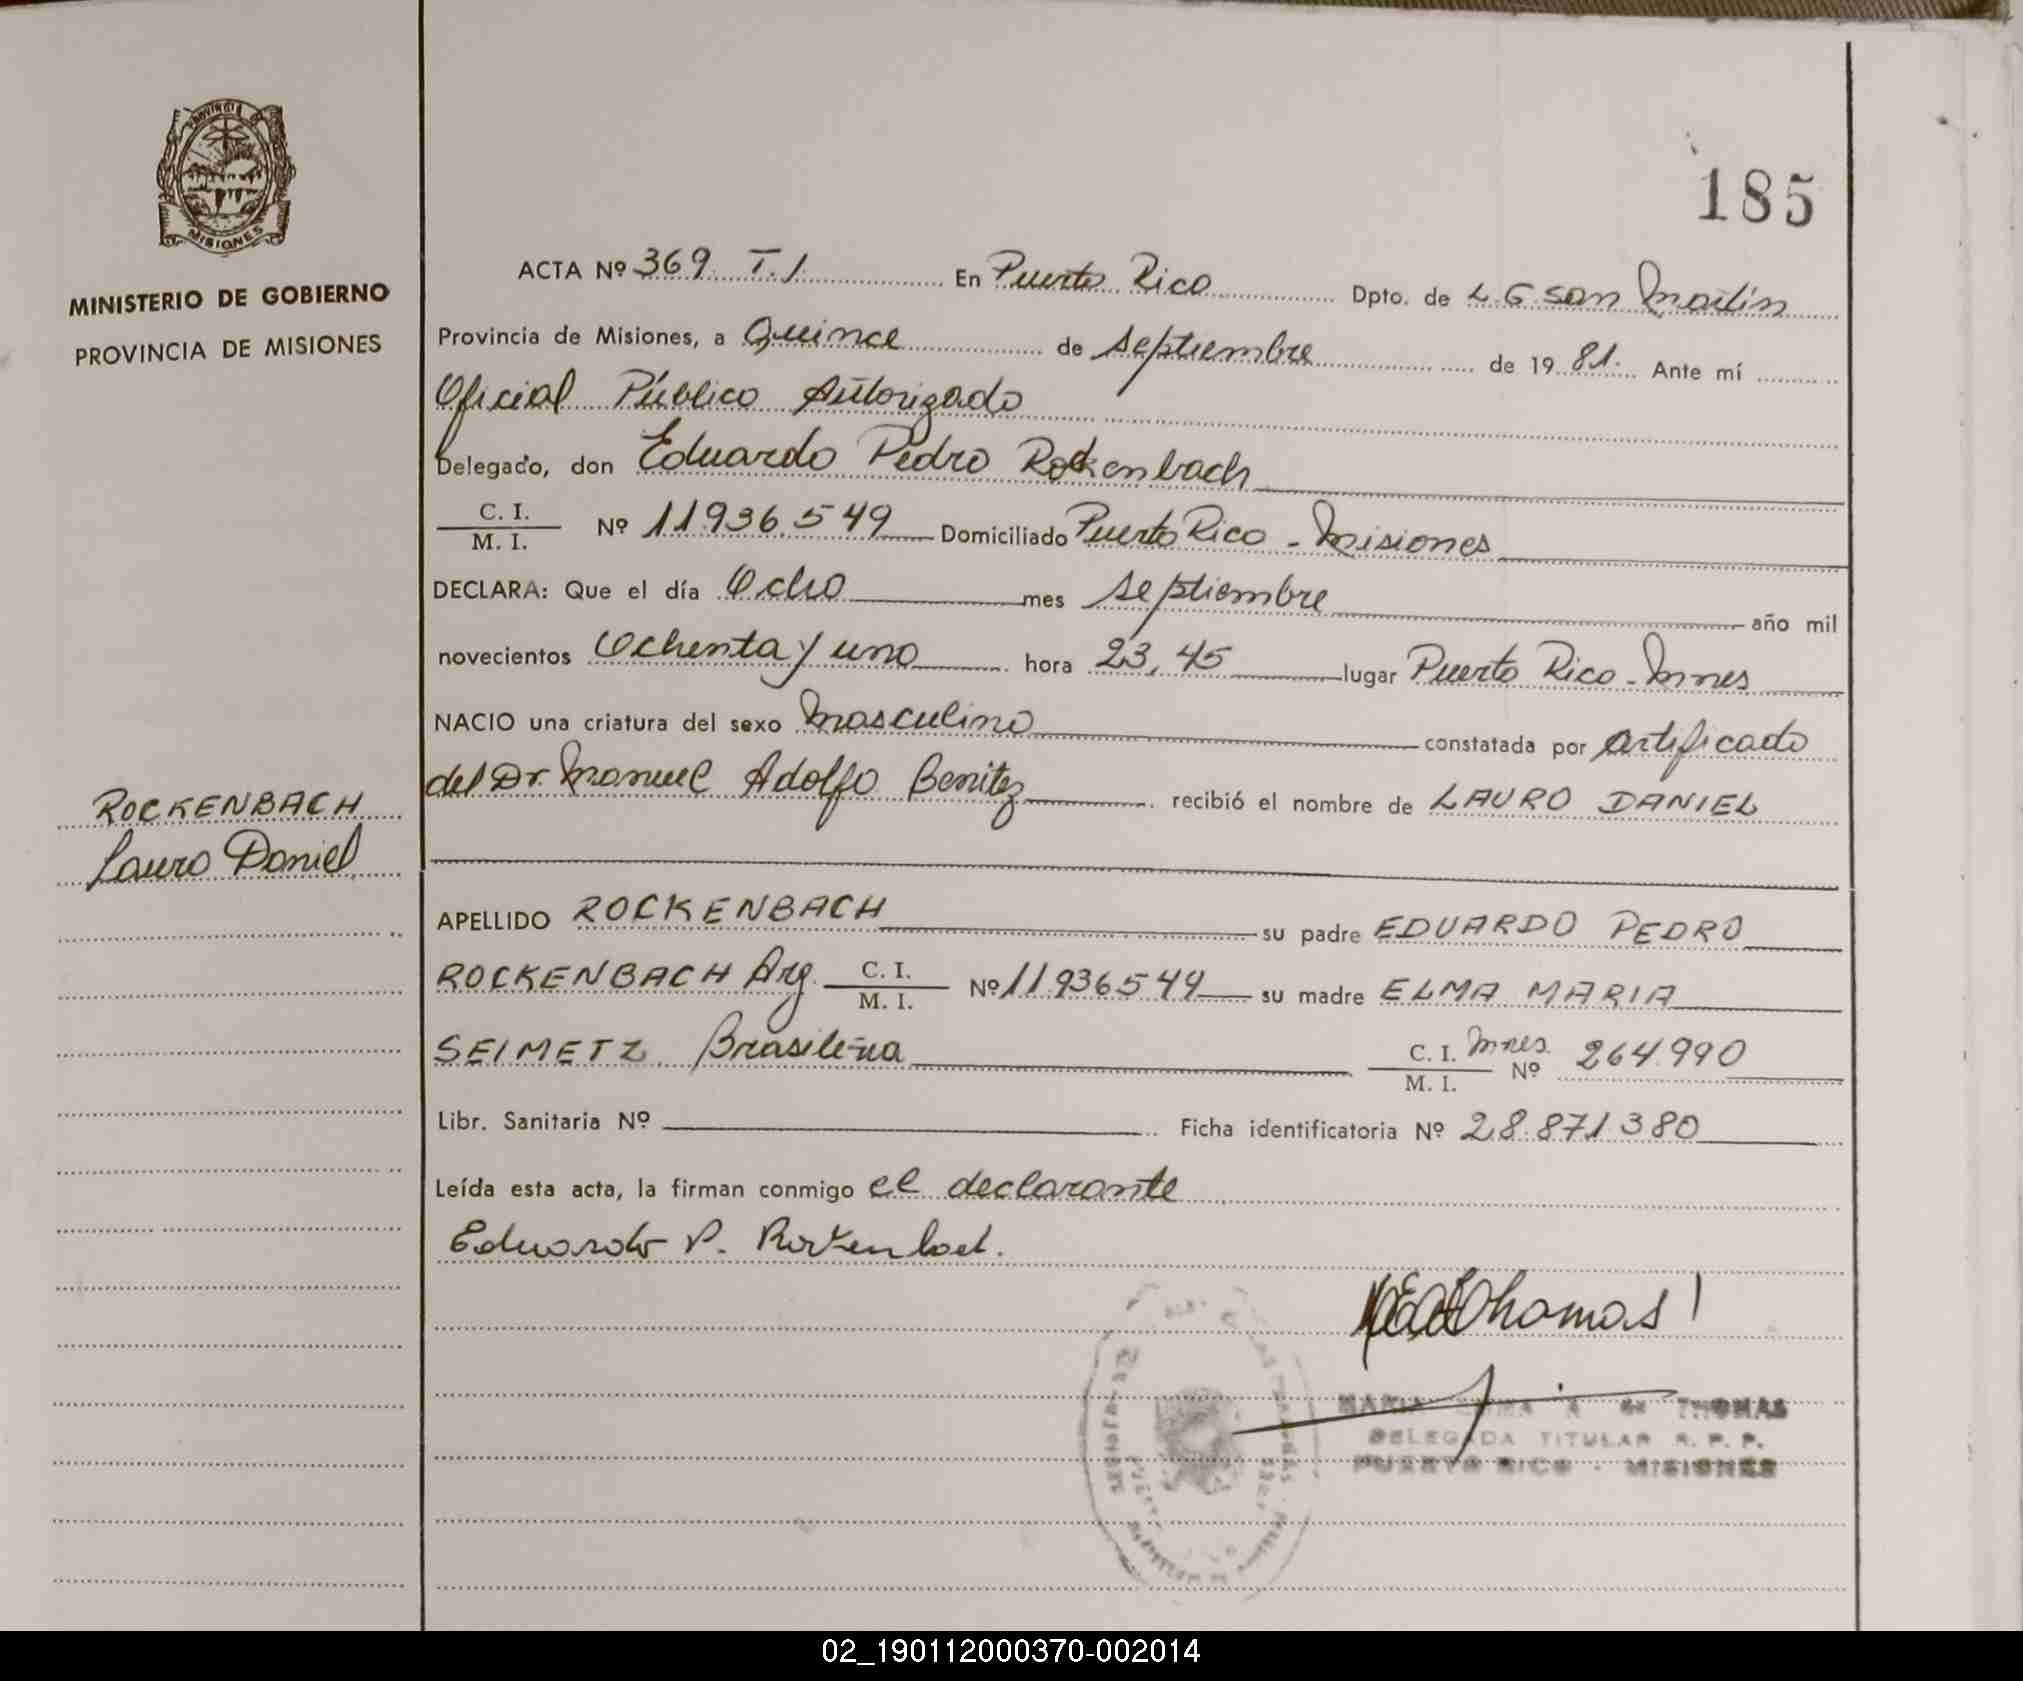 PROVINCIA DE
MISIONES
MINISTERIO DE GOBIERNO
PROVINCIA DE MISIONES
ROCKENBACH
Lauro Daniel
185
ACTA Nº 369 T. I En Puerto Rico Dpto. de L. G. San Martín
Provincia de Misiones, a Quince de Septiembre de 1981. Ante mí
Oficial Público Autorizado
Delegado, don Eduardo Pedro Rockenbach
C. I. / M. I. Nº 11.936.549 Domiciliado Puerto Rico - Misiones
DECLARA: Que el día Ocho mes Septiembre año mil
novecientos Ochenta y uno hora 23,45 lugar Puerto Rico - Mnes
NACIO una criatura del sexo Masculino constatada por certificado
del Dr. Manuel Adolfo Benitez recibió el nombre de LAURO DANIEL
APELLIDO ROCKENBACH su padre EDUARDO PEDRO
ROCKENBACH Arg. C. I. / M. I. Nº 11.936.549 su madre ELMA MARIA
SEIMETZ Brasileña C. I. / M. I. Mnes. Nº 264.990
Libr. Sanitaria Nº Ficha identificatoria Nº 28.871.380
Leída esta acta, la firman conmigo el declarante
Eduardo P. Rockenbach.
Thomas
MARIA THOMAS
DELEGADA TITULAR R. P. P.
PUERTO RICO - MISIONES
02_190112000370-002014